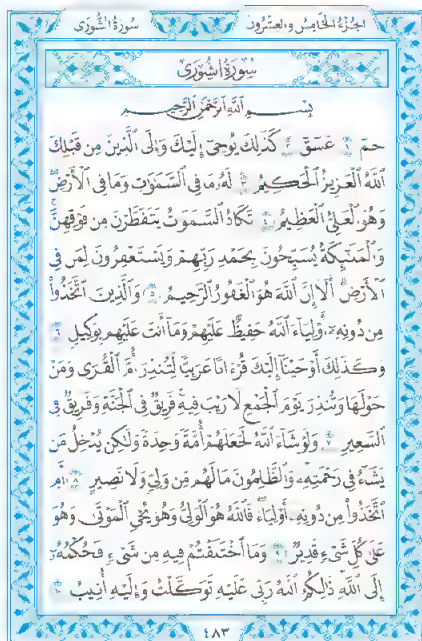 الجزء الخامس والعشرون سورة الشورى
سورة الشورى
بسم الله الرحمن الرحيم
حمٓ ١ عٓسٓقٓ ٢ كَذَٰلِكَ يُوحِىٓ إِلَيْكَ وَإِلَى ٱلَّذِينَ مِن قَبْلِكَ
ٱللَّهُ ٱلْعَزِيزُ ٱلْحَكِيمُ ٣ لَهُۥ مَا فِى ٱلسَّمَٰوَٰتِ وَمَا فِى ٱلْأَرْضِ
وَهُوَ ٱلْعَلِىُّ ٱلْعَظِيمُ ٤ تَكَادُ ٱلسَّمَٰوَٰتُ يَتَفَطَّرْنَ مِن فَوْقِهِنَّ
وَٱلْمَلَٰٓئِكَةُ يُسَبِّحُونَ بِحَمْدِ رَبِّهِمْ وَيَسْتَغْفِرُونَ لِمَن فِى
ٱلْأَرْضِ أَلَآ إِنَّ ٱللَّهَ هُوَ ٱلْغَفُورُ ٱلرَّحِيمُ ٥ وَٱلَّذِينَ ٱتَّخَذُوا۟
مِن دُونِهِۦٓ أَوْلِيَآءَ ٱللَّهُ حَفِيظٌ عَلَيْهِمْ وَمَآ أَنتَ عَلَيْهِم بِوَكِيلٍ ٦
وَكَذَٰلِكَ أَوْحَيْنَآ إِلَيْكَ قُرْءَانًا عَرَبِيًّا لِّتُنذِرَ أُمَّ ٱلْقُرَىٰ وَمَنْ
حَوْلَهَا وَتُنذِرَ يَوْمَ ٱلْجَمْعِ لَا رَيْبَ فِيهِ فَرِيقٌ فِى ٱلْجَنَّةِ وَفَرِيقٌ فِى
ٱلسَّعِيرِ ٧ وَلَوْ شَآءَ ٱللَّهُ لَجَعَلَهُمْ أُمَّةً وَٰحِدَةً وَلَٰكِن يُدْخِلُ مَن
يَشَآءُ فِى رَحْمَتِهِۦ وَٱلظَّٰلِمُونَ مَا لَهُم مِّن وَلِىٍّ وَلَا نَصِيرٍ ٨ أَمِ
ٱتَّخَذُوا۟ مِن دُونِهِۦٓ أَوْلِيَآءَ فَٱللَّهُ هُوَ ٱلْوَلِىُّ وَهُوَ يُحْىِ ٱلْمَوْتَىٰ وَهُوَ
عَلَىٰ كُلِّ شَىْءٍ قَدِيرٌ ٩ وَمَا ٱخْتَلَفْتُمْ فِيهِ مِن شَىْءٍ فَحُكْمُهُۥٓ
إِلَى ٱللَّهِ ذَٰلِكُمُ ٱللَّهُ رَبِّى عَلَيْهِ تَوَكَّلْتُ وَإِلَيْهِ أُنِيبُ ١٠
٤٨٣